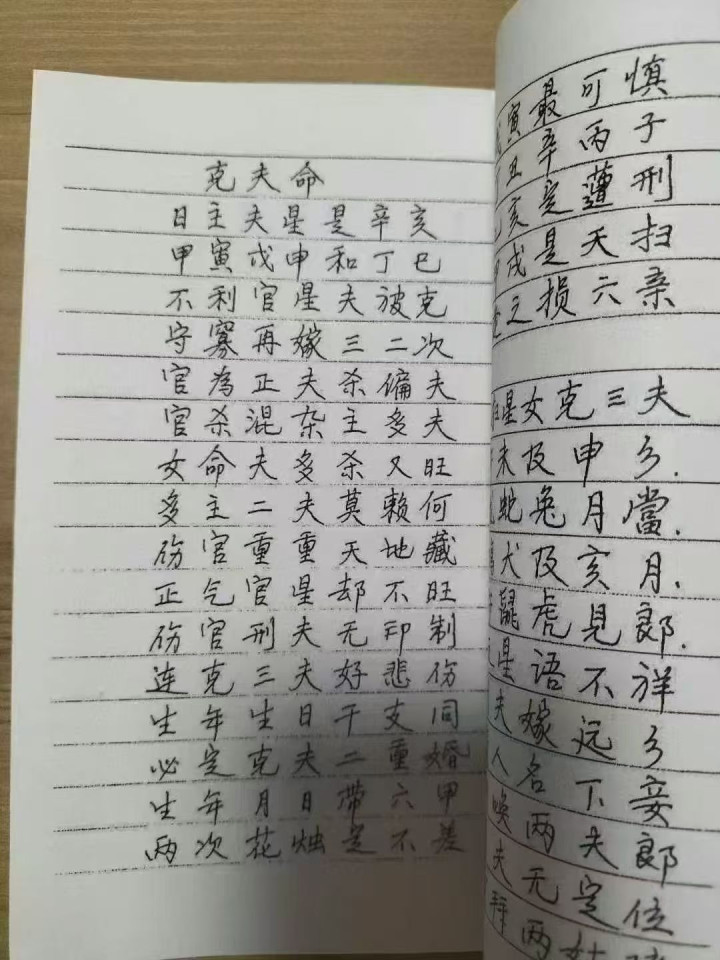 克夫命
日主夫星是辛亥
甲寅戊申和丁巳
不利官星夫被克
守寡再嫁三二次
官為正夫杀偏夫
官杀混杂主多夫
女命夫多杀又旺
多主二夫莫赖何
伤官重重天地藏
正气官星却不旺
伤官刑夫无印制
连克三夫好悲伤
生年生日干支同
必定克夫二重婚
生年月日带六甲
两次花烛定不差
寅最可慎
丑辛丙子
亥定遭刑
戌是天扫
之损六亲
星女克三夫
未及申乡.
蛇兔月當.
犬及亥月.
鼠虎見郎.
星语不祥
夫嫁远乡
人名下妾
唤两夫郎
夫无定位
拜两